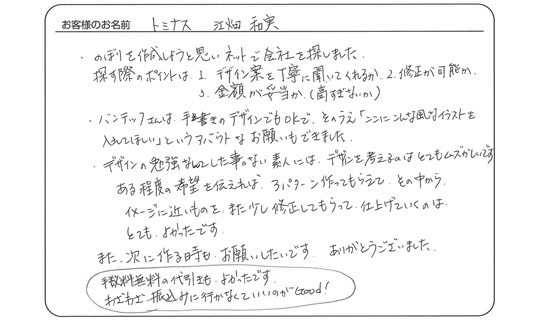 お客様のお名前 トミナス 江畑 和実
・のぼりを作成しようと思いネットで会社を探しました。
探す際のポイントは、1. デザイン案を丁寧に聞いてくれるか、2. 修正が可能か、
3. 金額が妥当か、(高すぎないか)
・バンテックさんは、手書きのデザインでもOKで、そのうえ「ここにこんな風なイラストを
入れてほしい」というアバウトなお願いもできました。
・デザインの勉強なんてした事のない素人には、デザインを考えるのはとてもムズかしいです
ある程度の希望を伝えれば、3パターン作ってもらえて、その中から、
イメージに近いものを、また少し修正してもらって、仕上げていくのは、
とても、よかったです。
また、次に作る時も、お願いしたいです。ありがとうございました。
手数料無料の代引きも、よかったです。
わざわざ振込みに行かなくていいのがGood!